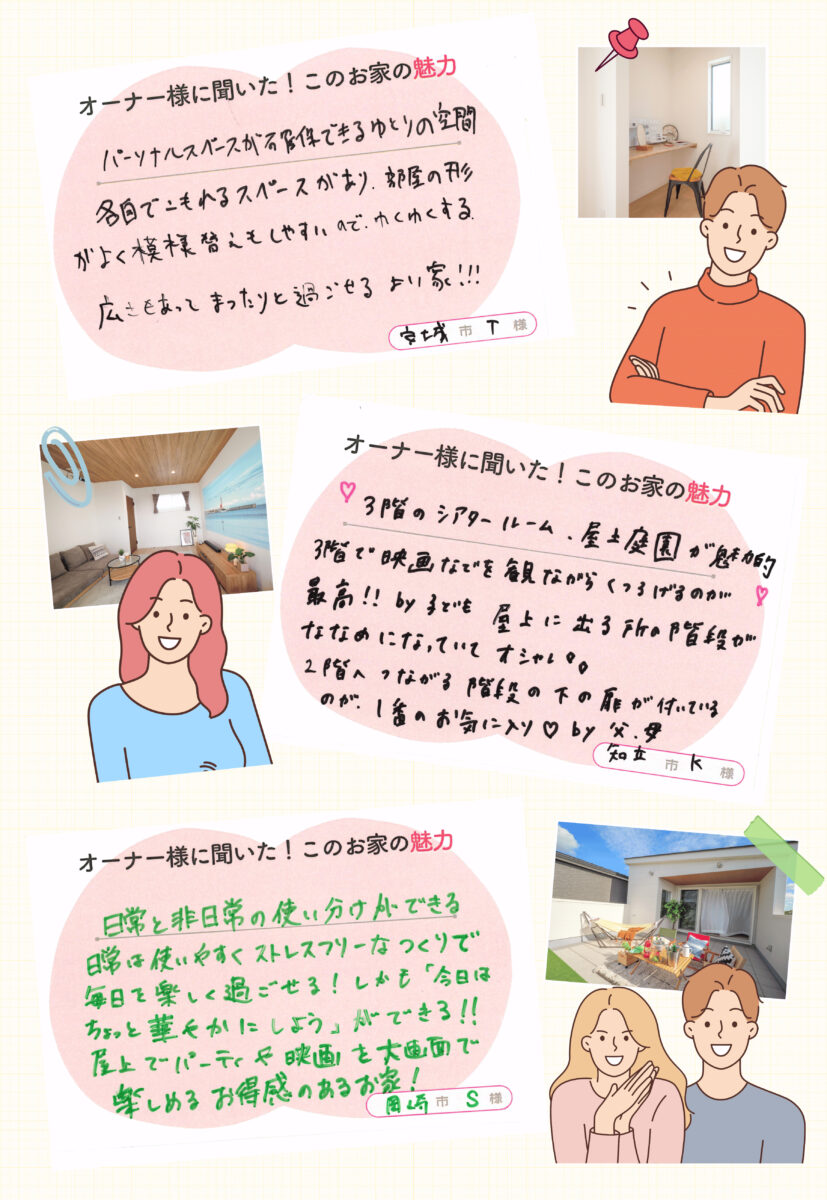 オーナー様に聞いた！このお家の魅力
パーソナルスペースが確保できるゆとりの空間
各自でこもれるスペースがあり、部屋の形
がよく模様替えもしやすいので、わくわくする
広さもあってまったりと過ごせるよい家!!!
安城市T様
オーナー様に聞いた！このお家の魅力
♡3階のシアタールーム、屋上庭園が魅力的
3階で映画などを観ながらくつろげるのが♡
最高!! by 子ども 屋上に出る所の階段が
ななめになっていてオシャレ。。
2階へつながる階段の下の扉が付いている
のが、1番のお気に入り♡ by 父、母
知立市K様
オーナー様に聞いた！このお家の魅力
日常と非日常の使い分けができる
日常は使いやすくストレスフリーなつくりで
毎日を楽しく過ごせる！しかも「今日は
ちょっと華やかにしよう」ができる!!
屋上でパーティや映画を大画面で
楽しめるお得感のあるお家！
岡崎市S様